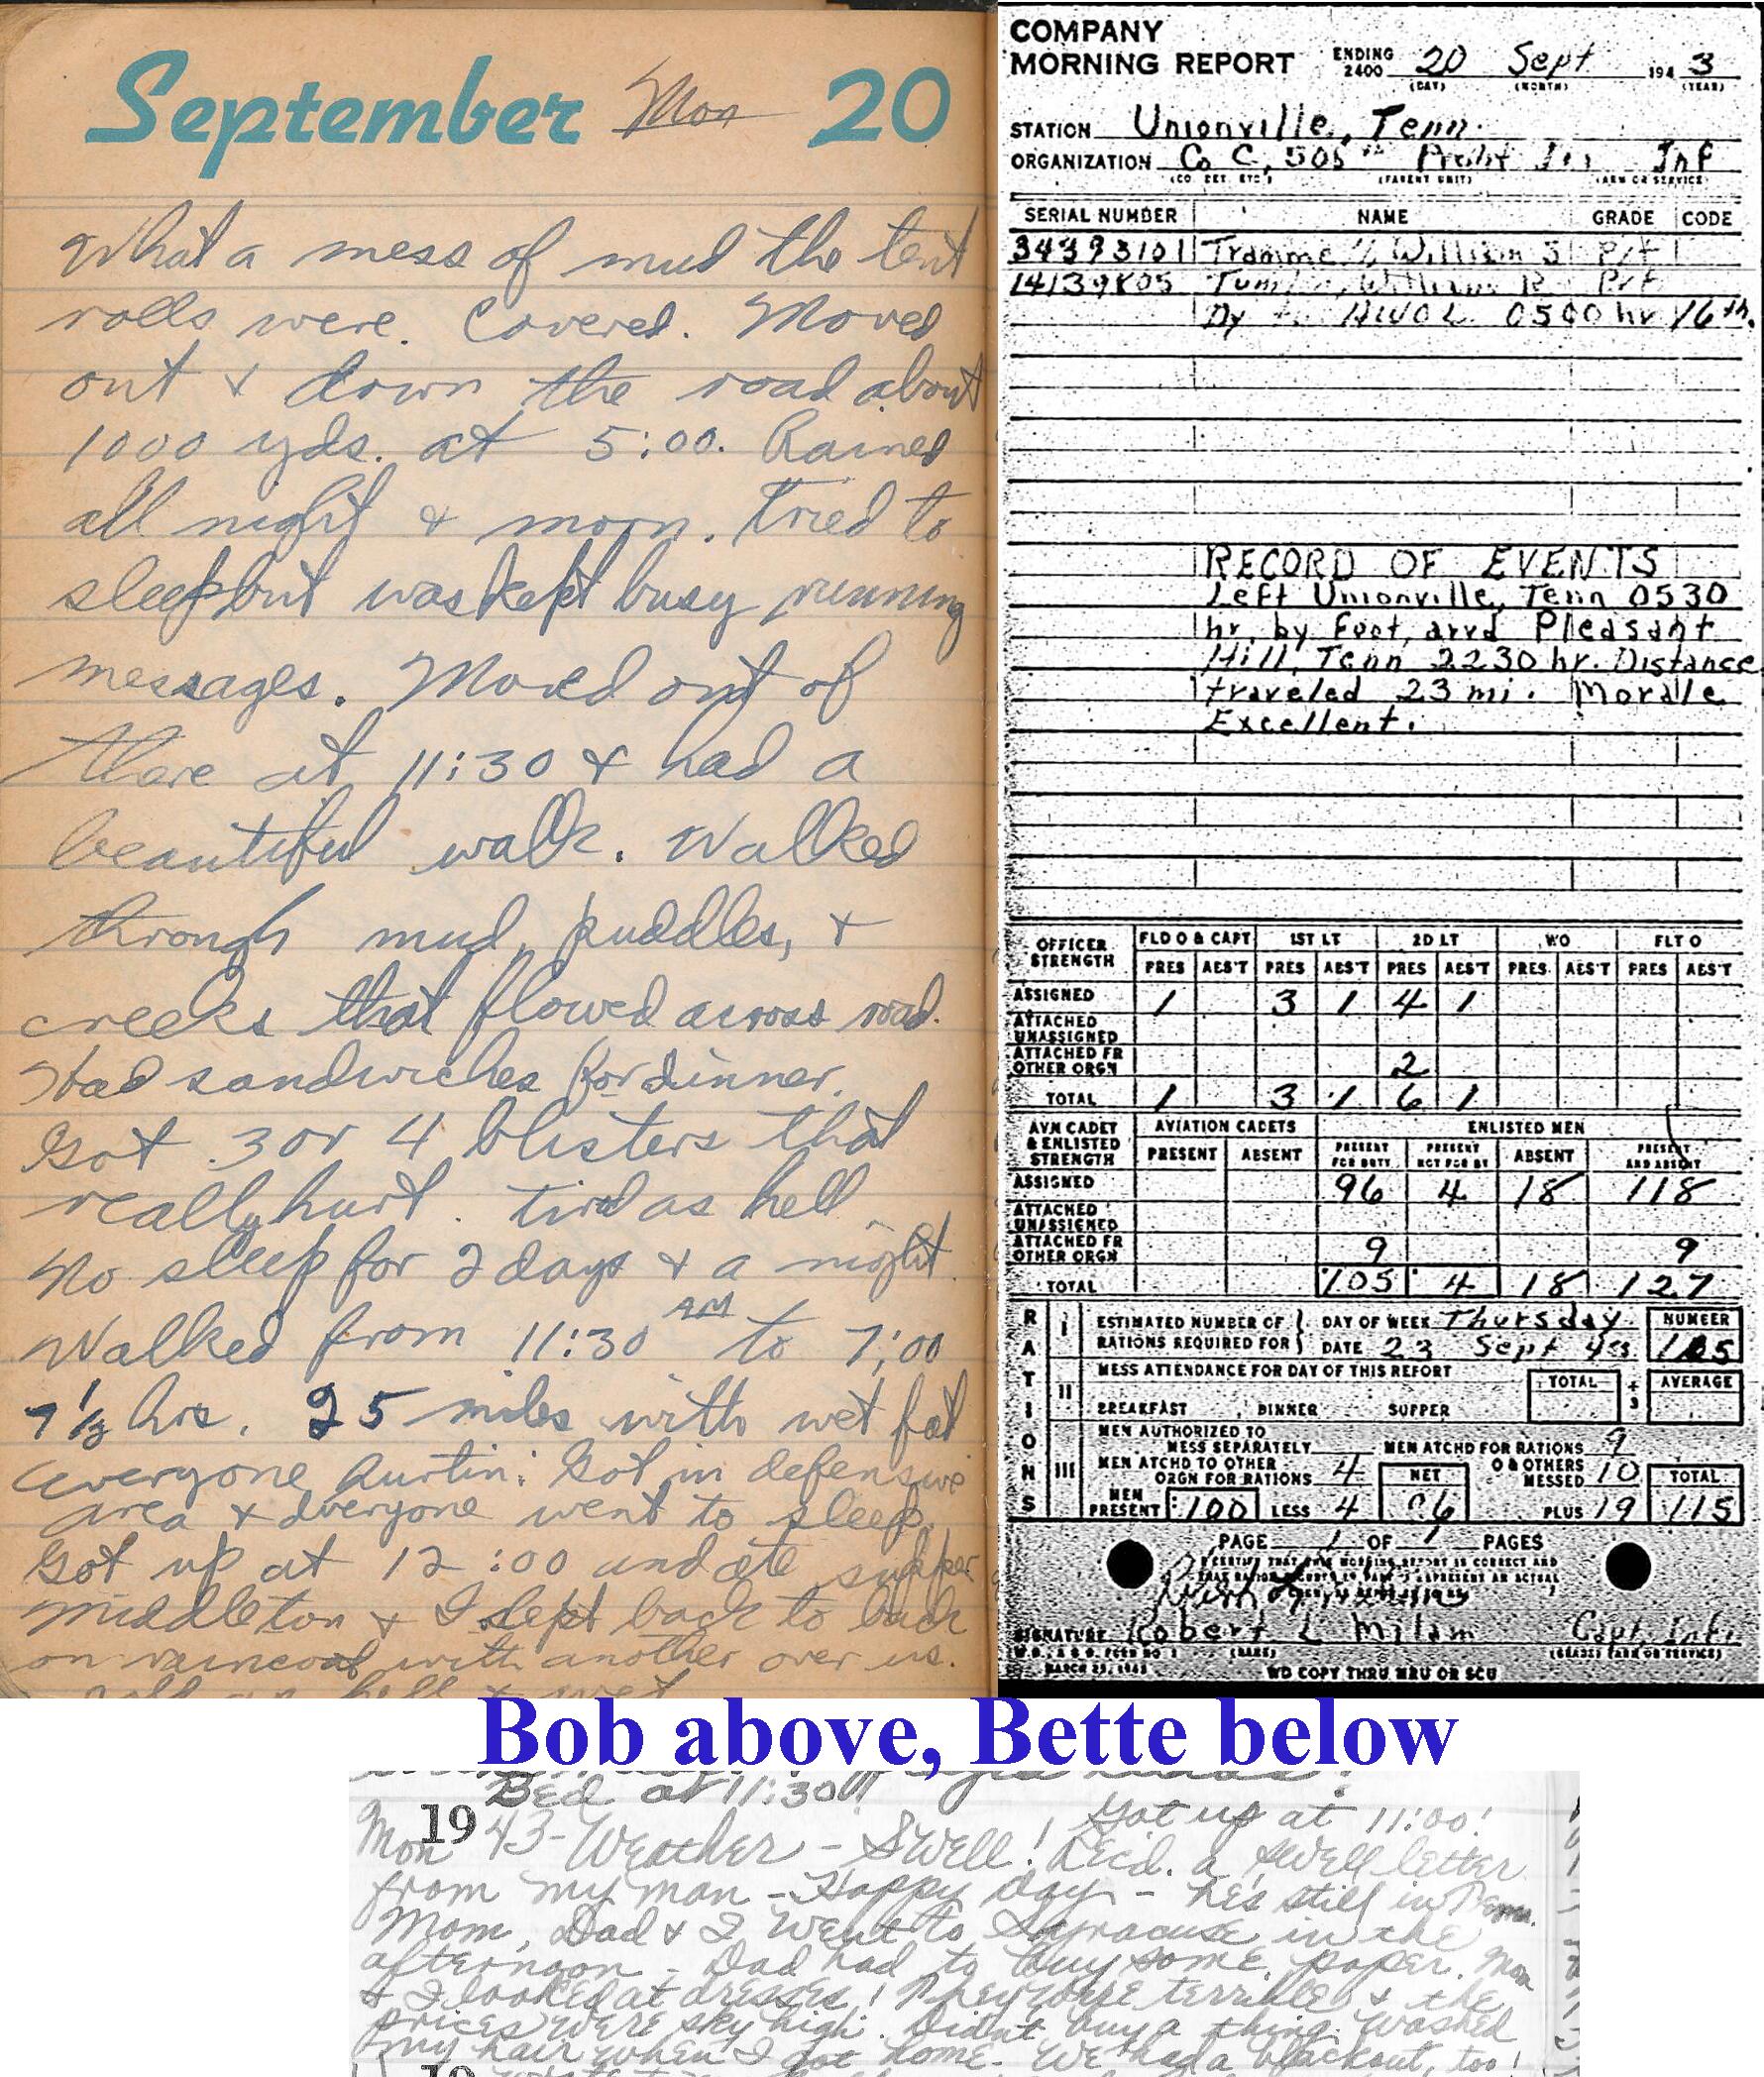 September Mon 20
What a mess of mud the tent
rolls were. Covered. Moved
out & down the road about
1000 yds. at 5:00. Rained
all night & morn. Tried to
sleep but was kept busy running
messages. Moved out of
there at 11:30 & had a
beautiful walk. Walked
through mud, puddles, &
creeks that flowed across road.
Had sandwiches for dinner.
Got 3 or 4 blisters that
really hurt. Tired as hell
No sleep for 2 days & a night.
Walked from 11:30 AM to 7:00
7 1/2 hrs. 25 miles with wet
everyone hurtin: Got in defensive
area & everyone went to sleep.
Got up at 12:00 and ate supper
Middleton & I slept back to back
on raincoat with another over us.
hell & wet
COMPANY
MORNING REPORT ENDING 2400 20 Sept 1943
(DAY) (MONTH) (YEAR)
STATION Unionville, Tenn.
ORGANIZATION Co C, 505th Inf
(CO. DET. ETC.) (PARENT UNIT) (ARM OR SERVICE)
SERIAL NUMBER NAME GRADE CODE
34393101 William S Pvt
14139805 William R Pvt
Dy to AWOL 0500 hr 16th.
RECORD OF EVENTS
Left Unionville, Tenn 0530
hr. by foot, arvd Pleasant
Hill, Tenn 2230 hr. Distance
traveled 23 mi. Morale
Excellent.
OFFICER STRENGTH FLD O & CAPT 1ST LT 2D LT WO FLT O
PRES ABS'T PRES ABS'T PRES ABS'T PRES ABS'T PRES ABS'T
ASSIGNED 1 3 1 4 1
ATTACHED UNASSIGNED
ATTACHED FR OTHER ORGN 2
TOTAL 1 3 1 6 1
AVN CADET & ENLISTED STRENGTH AVIATION CADETS ENLISTED MEN
PRESENT ABSENT PRESENT FOR DUTY PRESENT NOT FOR DY ABSENT PRESENT AND ABSENT
ASSIGNED 96 4 18 118
ATTACHED UNASSIGNED
ATTACHED FR OTHER ORGN 9 9
TOTAL 105 4 18 127
RATIONS
I ESTIMATED NUMBER OF RATIONS REQUIRED FOR DAY OF WEEK Thursday NUMBER
DATE 23 Sept 43
II MESS ATTENDANCE FOR DAY OF THIS REPORT TOTAL ÷ 3 AVERAGE
BREAKFAST DINNER SUPPER
III MEN AUTHORIZED TO MESS SEPARATELY MEN ATCHD FOR RATIONS 9
MEN ATCHD TO OTHER ORGN FOR RATIONS 4 NET O & OTHERS MESSED 10 TOTAL
MEN PRESENT 100 LESS 4 96 PLUS 19 115
PAGE 1 OF 1 PAGES
SIGNATURE Robert L Milam Capt. Inf.
MARCH 25, 1943 (NAME) (GRADE) (ARM OR SERVICE)
WD COPY THRU MRU OR SCU
Bob above, Bette below
Bed at 11:30!!
Got up at 11:00!
Mon 1943 - Weather - Swell! Rec'd. a swell letter
from my man - Happy day - he's still in Tenn.
Mom, Dad & I went to Syracuse in the
afternoon - Dad had to buy some paper. Mom
& I looked at dresses! They were terrible & the
prices were sky high. Didn't buy a thing. Washed
my hair when I got home. We had a blackout, too!
19